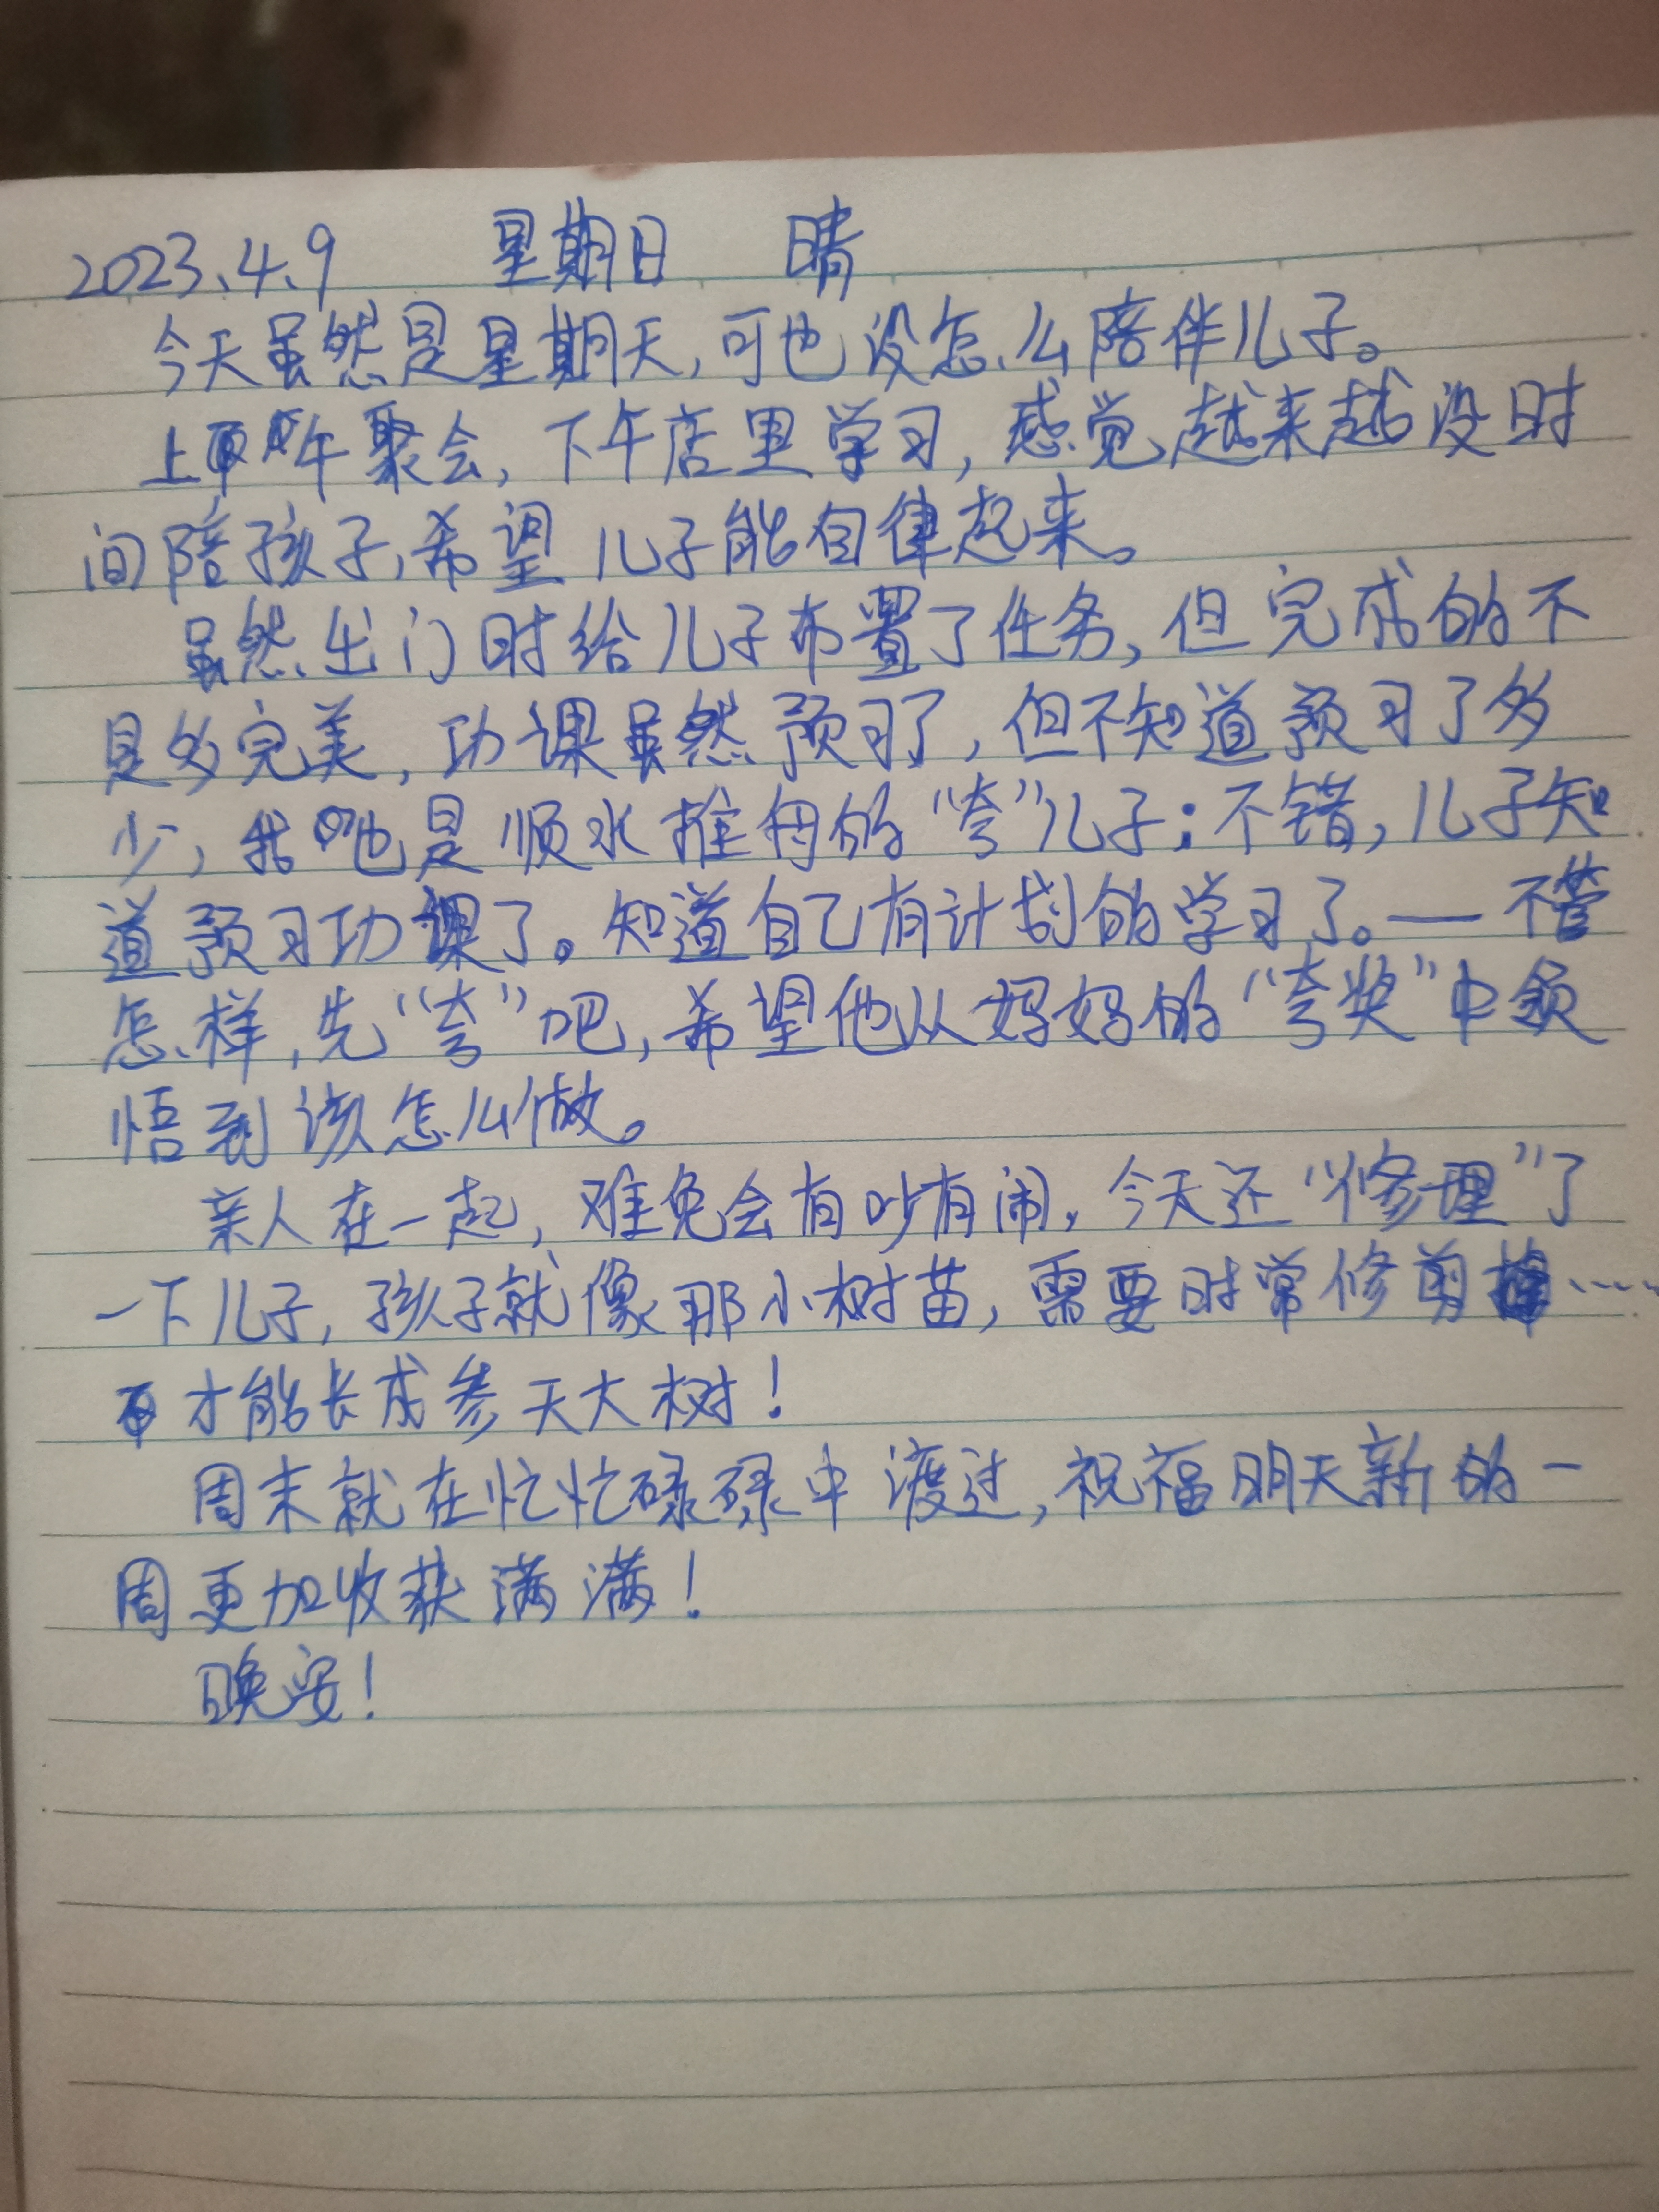 2023.4.9 星期日 晴
今天虽然是星期天,可也没怎么陪伴儿子。
上午聚会,下午店里学习,感觉越来越没时
间陪孩子,希望儿子能自律起来。
虽然出门时给儿子布置了任务,但完成的不
是多完美,功课虽然预习了,但不知道预习了多
少,我也是顺水推舟的“夸”儿子:不错,儿子知
道预习功课了。知道自己有计划的学习了。—不管
怎样,先“夸”吧,希望他从妈妈的“夸奖”中领
悟到该怎么做。
亲人在一起,难免会有吵有闹,今天还“修理”了
一下儿子,孩子就像那小树苗,需要时常修剪……
才能长成参天大树!
周末就在忙忙碌碌中渡过,祝福明天新的一
周更加收获满满!
晚安!